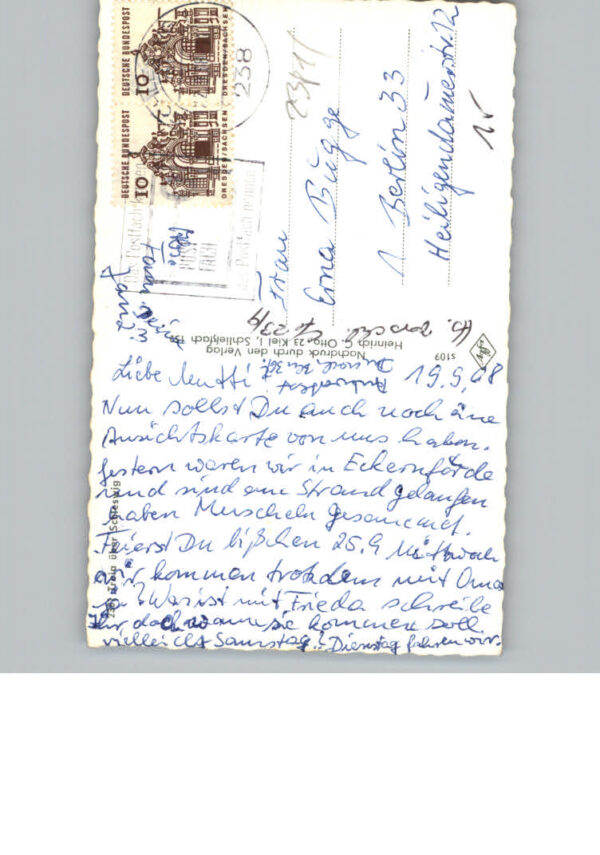 Liebe Mutti! 19.9.68
Nun sollst Du auch noch eine
Ansichtskarte von uns haben.
gestern waren wir in Eckernförde
und sind am Strand gelaufen
haben Muscheln gesammelt.
Feierst Du bißchen 25.9 Mittwoch
wir kommen trotzdem mit Oma
ja? Was ist mit Frieda schreibe
Ihr doch wann sie kommen soll
vielleicht Samstag! Dienstag fahren wir.
Frau
Erna Bugge
1 Berlin 33
Heiligendammerstr. 12
23/9
Nachdruck durch den Verlag
Heinrich C. Otto, 23 Kiel 1, Schließfach
s109
über Schleswig
DEUTSCHE BUNDESPOST
10
DRESDEN/SACHSEN
DEUTSCHE BUNDESPOST
10
DRESDEN/SACHSEN
238
Postfach